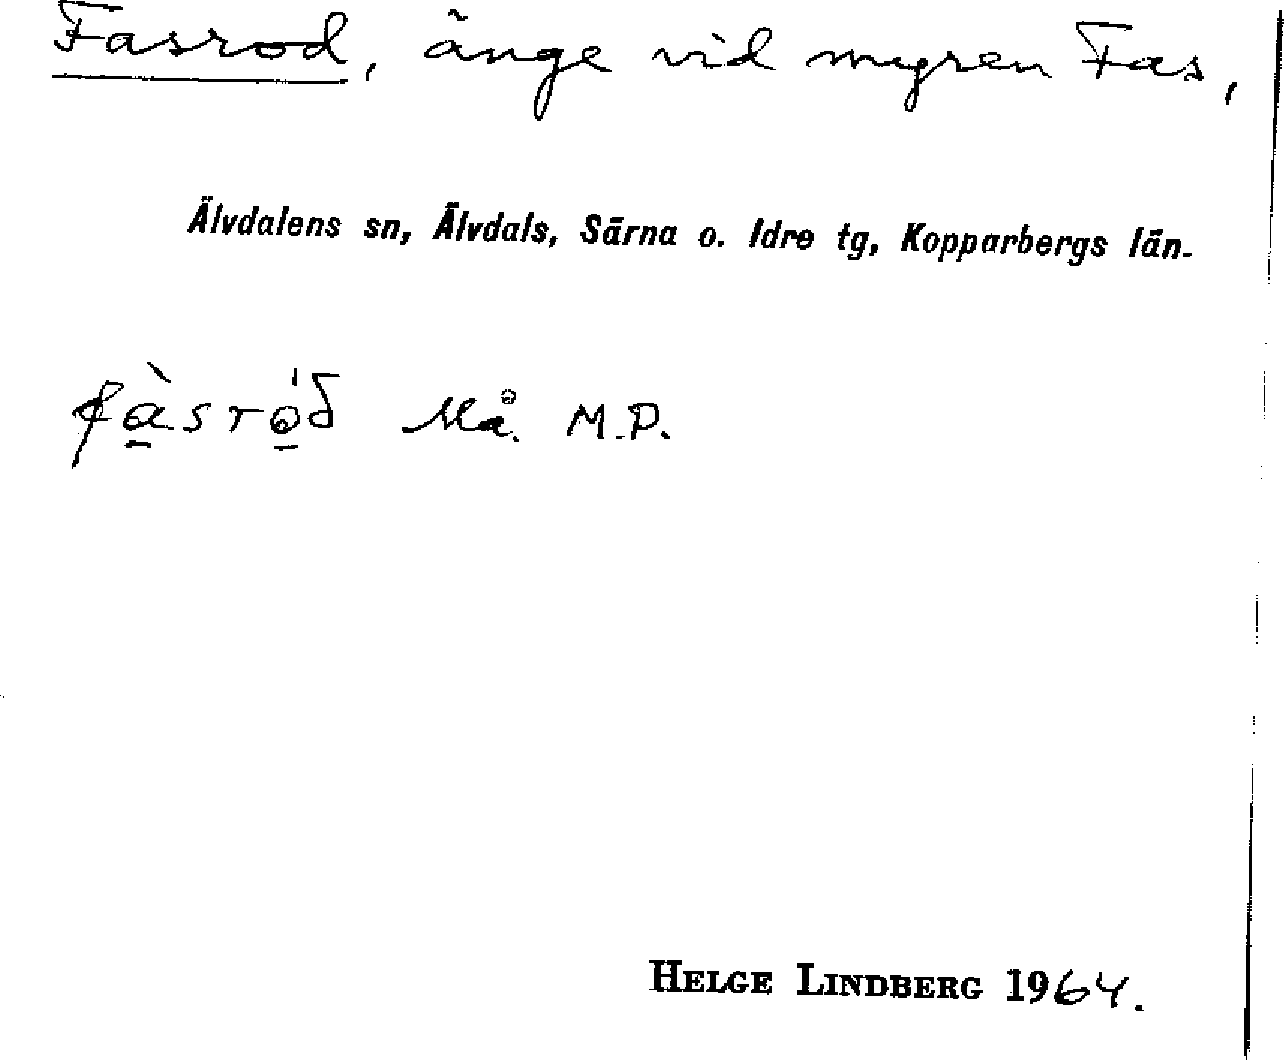 Fasrod, änge vid myren Fas,
Älvdalens sn, Älvdals, Särna o. Idre tg, Kopparbergs län.
fà̲sro̲̍d Må. M.P.
HELGE LINDBERG 1964.